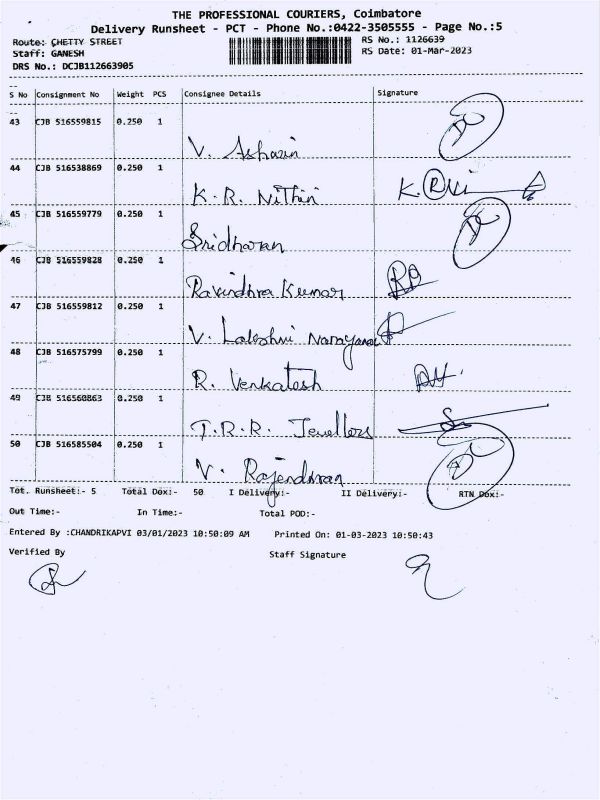 THE PROFESSIONAL COURIERS, Coimbatore
Delivery Runsheet - PCT - Phone No.:0422-3505555 - Page No.:5
Route: CHETTY STREET
RS No.: 1126639
Staff: GANESH
RS Date: 01-Mar-2023
DRS No.: DCJB112663905
S No Consignment No Weight PCS Consignee Details Signature
43 CJB 516559815 0.250 1
V. Ashwin
44 CJB 516538869 0.250 1
K. R. Nithin
45 CJB 516559779 0.250 1
Sridharan
46 CJB 516559828 0.250 1
Ravindhra Kumar
47 CJB 516559812 0.250 1
V. Lakshmi Narayanan
48 CJB 516575799 0.250 1
R. Venkatesh
49 CJB 516560863 0.250 1
T.R.R. Jewellers
50 CJB 516585504 0.250 1
V. Rajendhran
Tot. Runsheet:- 5 Total Dox:- 50 I Delivery:- II Delivery:- RTN Dox:-
Out Time:- In Time:- Total POD:-
Entered By :CHANDRIKAPVI 03/01/2023 10:50:09 AM Printed On: 01-03-2023 10:50:43
Verified By Staff Signature